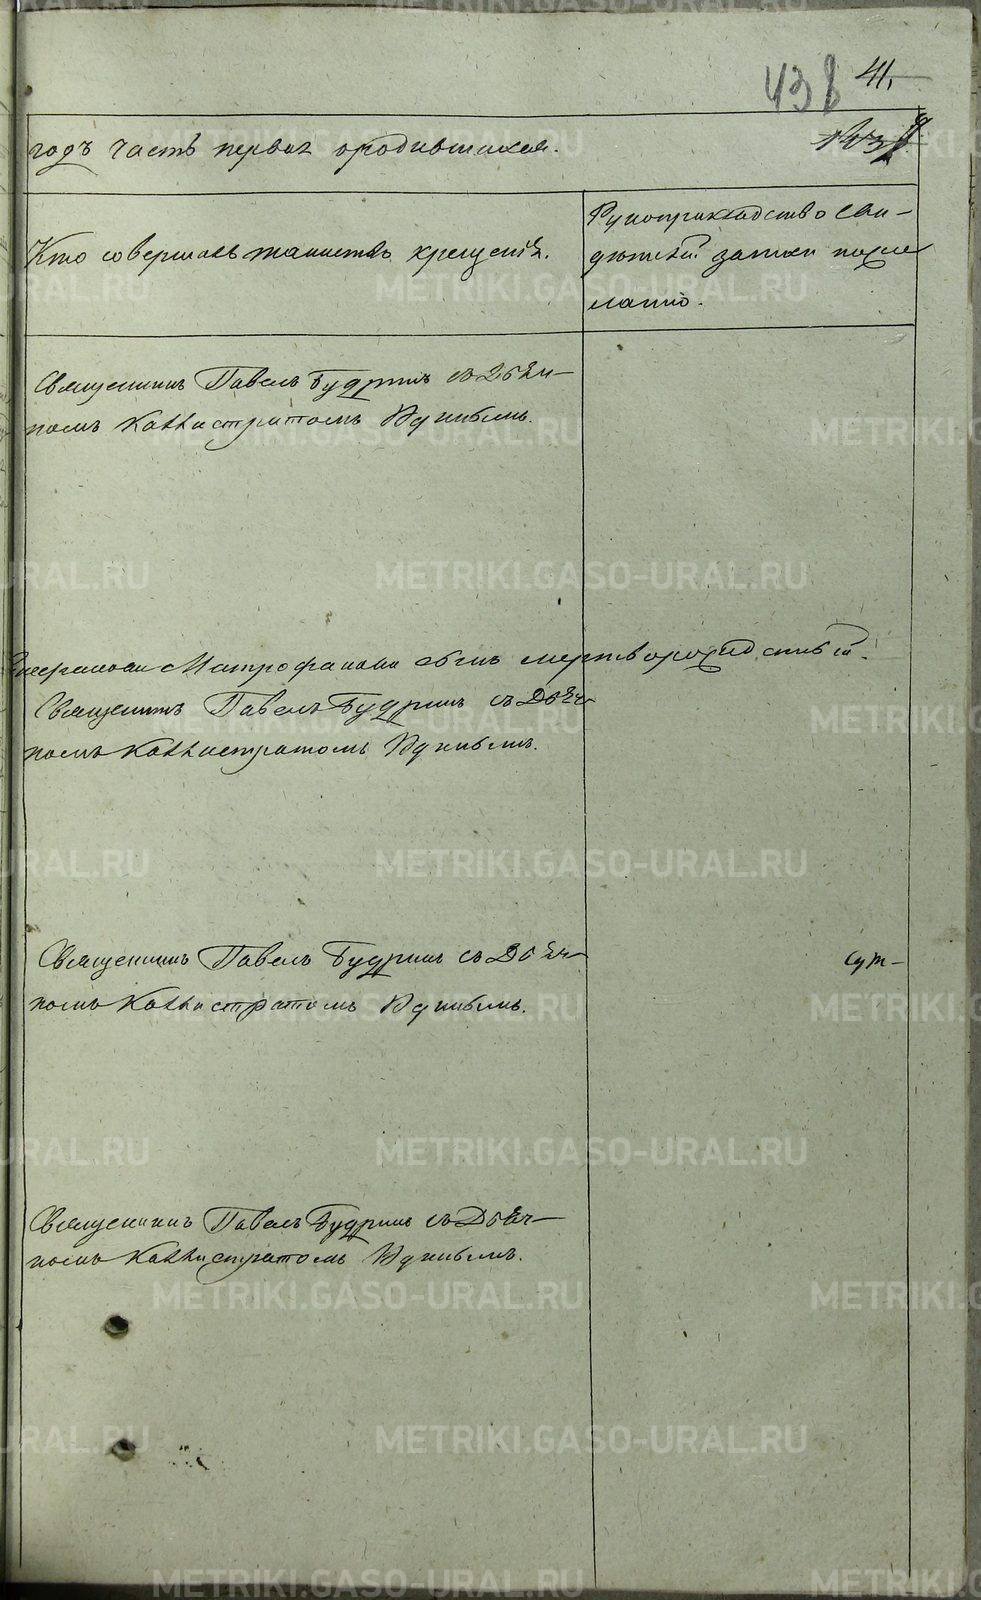 438 41.
годъ часть первая ородившихся.
Кто совершалъ таинство крещенія.
Рукоприкладство сви-
дѣтелей записи поже-
ланію.
Священникъ Павелъ Будринъ съ Дьяч-
комъ Каллистратомъ
Митрофановъ сынъ мертворожденный.
Священникъ Павелъ Будринъ съ Дьяч-
комъ Каллистратомъ
Священникъ Павелъ Будринъ съ Дьяч-
комъ Каллистратомъ
Священникъ Павелъ Будринъ съ Дьяч-
комъ Каллистратомъ
METRIKI.GASO-URAL.RU